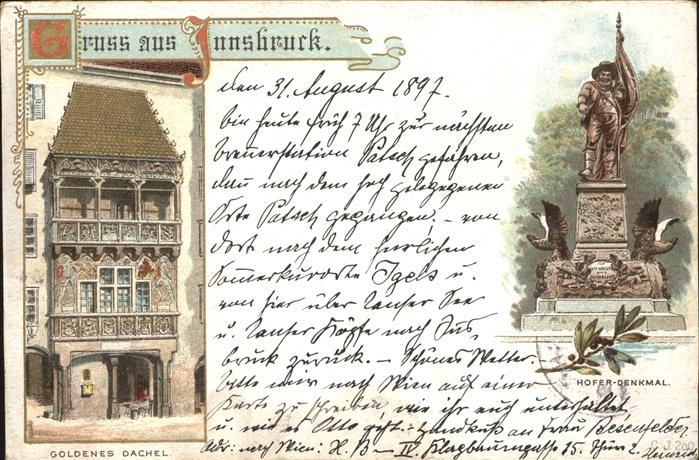 Gruss aus Innsbruck.
den 31. August 1897.
bin heute früh 7 Uhr zur nächsten
Brennerstation Patsch gefahren,
dann nach dem hoch gelegenen
Orte Patsch gegangen. – von
dort nach dem herrlichen
Sommerkurorte Igels u.
von hier über Lanser See
u. Lanser Köpfe nach Inns
bruck zurück. – Schönes Wetter. –
bitte mir nach Wien auf einer
Karte zu schreiben, wie ihr euch unterhaltet
u. wie es Otto geht. – Handkuß an Frau
Adr: nach Wien: H. B – IV. Klagbaumgasse 15. Thür 2.
GOLDENES DACHEL.
HOFER-DENKMAL.